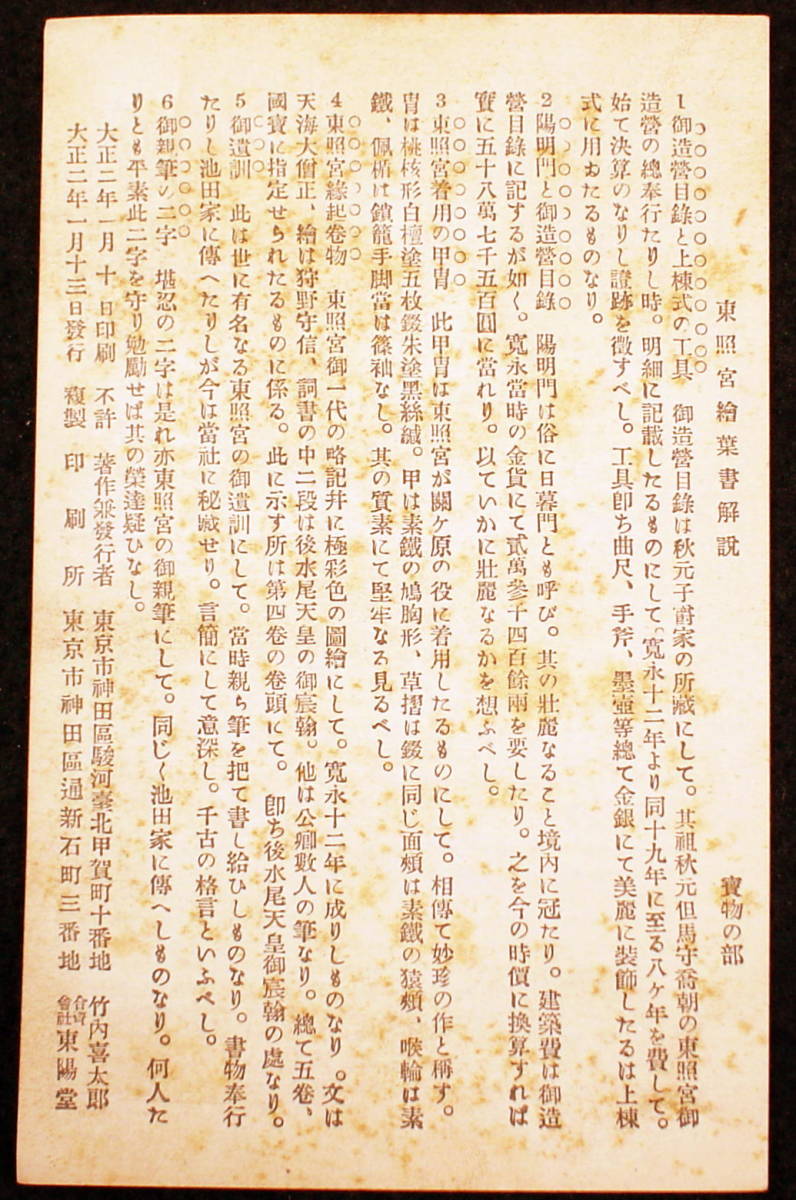 東照宮繪葉書解說　　寶物の部
1 御造營目錄と上棟式の工具　御造營目錄は秋元子爵家の所藏にして。其祖秋元但馬守喬朝の東照宮御
造營の總奉行たりし時。明細に記載したるものにして、寬永十二年より同十九年に至る八ケ年を費して。
始て決算のなりし證跡を徵すべし。工具卽ち曲尺、手斧、墨壺等總て金銀にて美麗に裝飾したるは上棟
式に用おたるものなり。
2 陽明門と御造營目錄　陽明門は俗に日暮門とも呼び。其の壯麗なること境內に冠たり。建築費は御造
營目錄に記するが如く。寬永當時の金貨にて貳萬參千四百餘兩を要したり。之を今の時價に換算すれば
實に五十八萬七千五百圓に當れり。以ていかに壯麗なるかを想ふべし。
3 東照宮着用の甲冑　此甲冑は東照宮が關ケ原の役に着用したるものにして。相傳て妙珍の作と稱す。
冑は桃核形白檀塗五枚錣朱塗黑絲縅。甲は素鐵の鳩胸形、草摺は錣に同じ面頰は素鐵の猿頰、喉輪は素
鐵、佩楯は鎖籠手脚當は篠袖なし。其の質素にて堅牢なる見るべし。
4 東照宮緣起卷物　東照宮御一代の略記幷に極彩色の圖繪にして。寬永十二年に成りしものなり。文は
天海大僧正、繪は狩野守信、詞書の中二段は後水尾天皇の御宸翰。他は公卿數人の筆なり。總て五卷、
國寶に指定せられたるものに係る。此に示す所は第四卷の卷頭にて。卽ち後水尾天皇御宸翰の處なり。
5 御遺訓　此は世に有名なる東照宮の御遺訓にして。當時親ら筆を把て書し給ひしものなり。書物奉行
たりし池田家に傳へたりしが今は當社に秘藏せり。言簡にして意深し。千古の格言といふべし。
6 御親筆の二字　堪忍の二字は是れ亦東照宮の御親筆にして。同じく池田家に傳へしものなり。何人た
りとも平素此二字を守り勉勵せば其の榮達疑ひなし。
大正二年一月十日印刷　不許　著作兼發行者　東京市神田區駿河臺北甲賀町十番地　竹內喜太郎
大正二年一月十三日發行　複製　印刷所　東京市神田區通新石町三番地　合資會社東陽堂